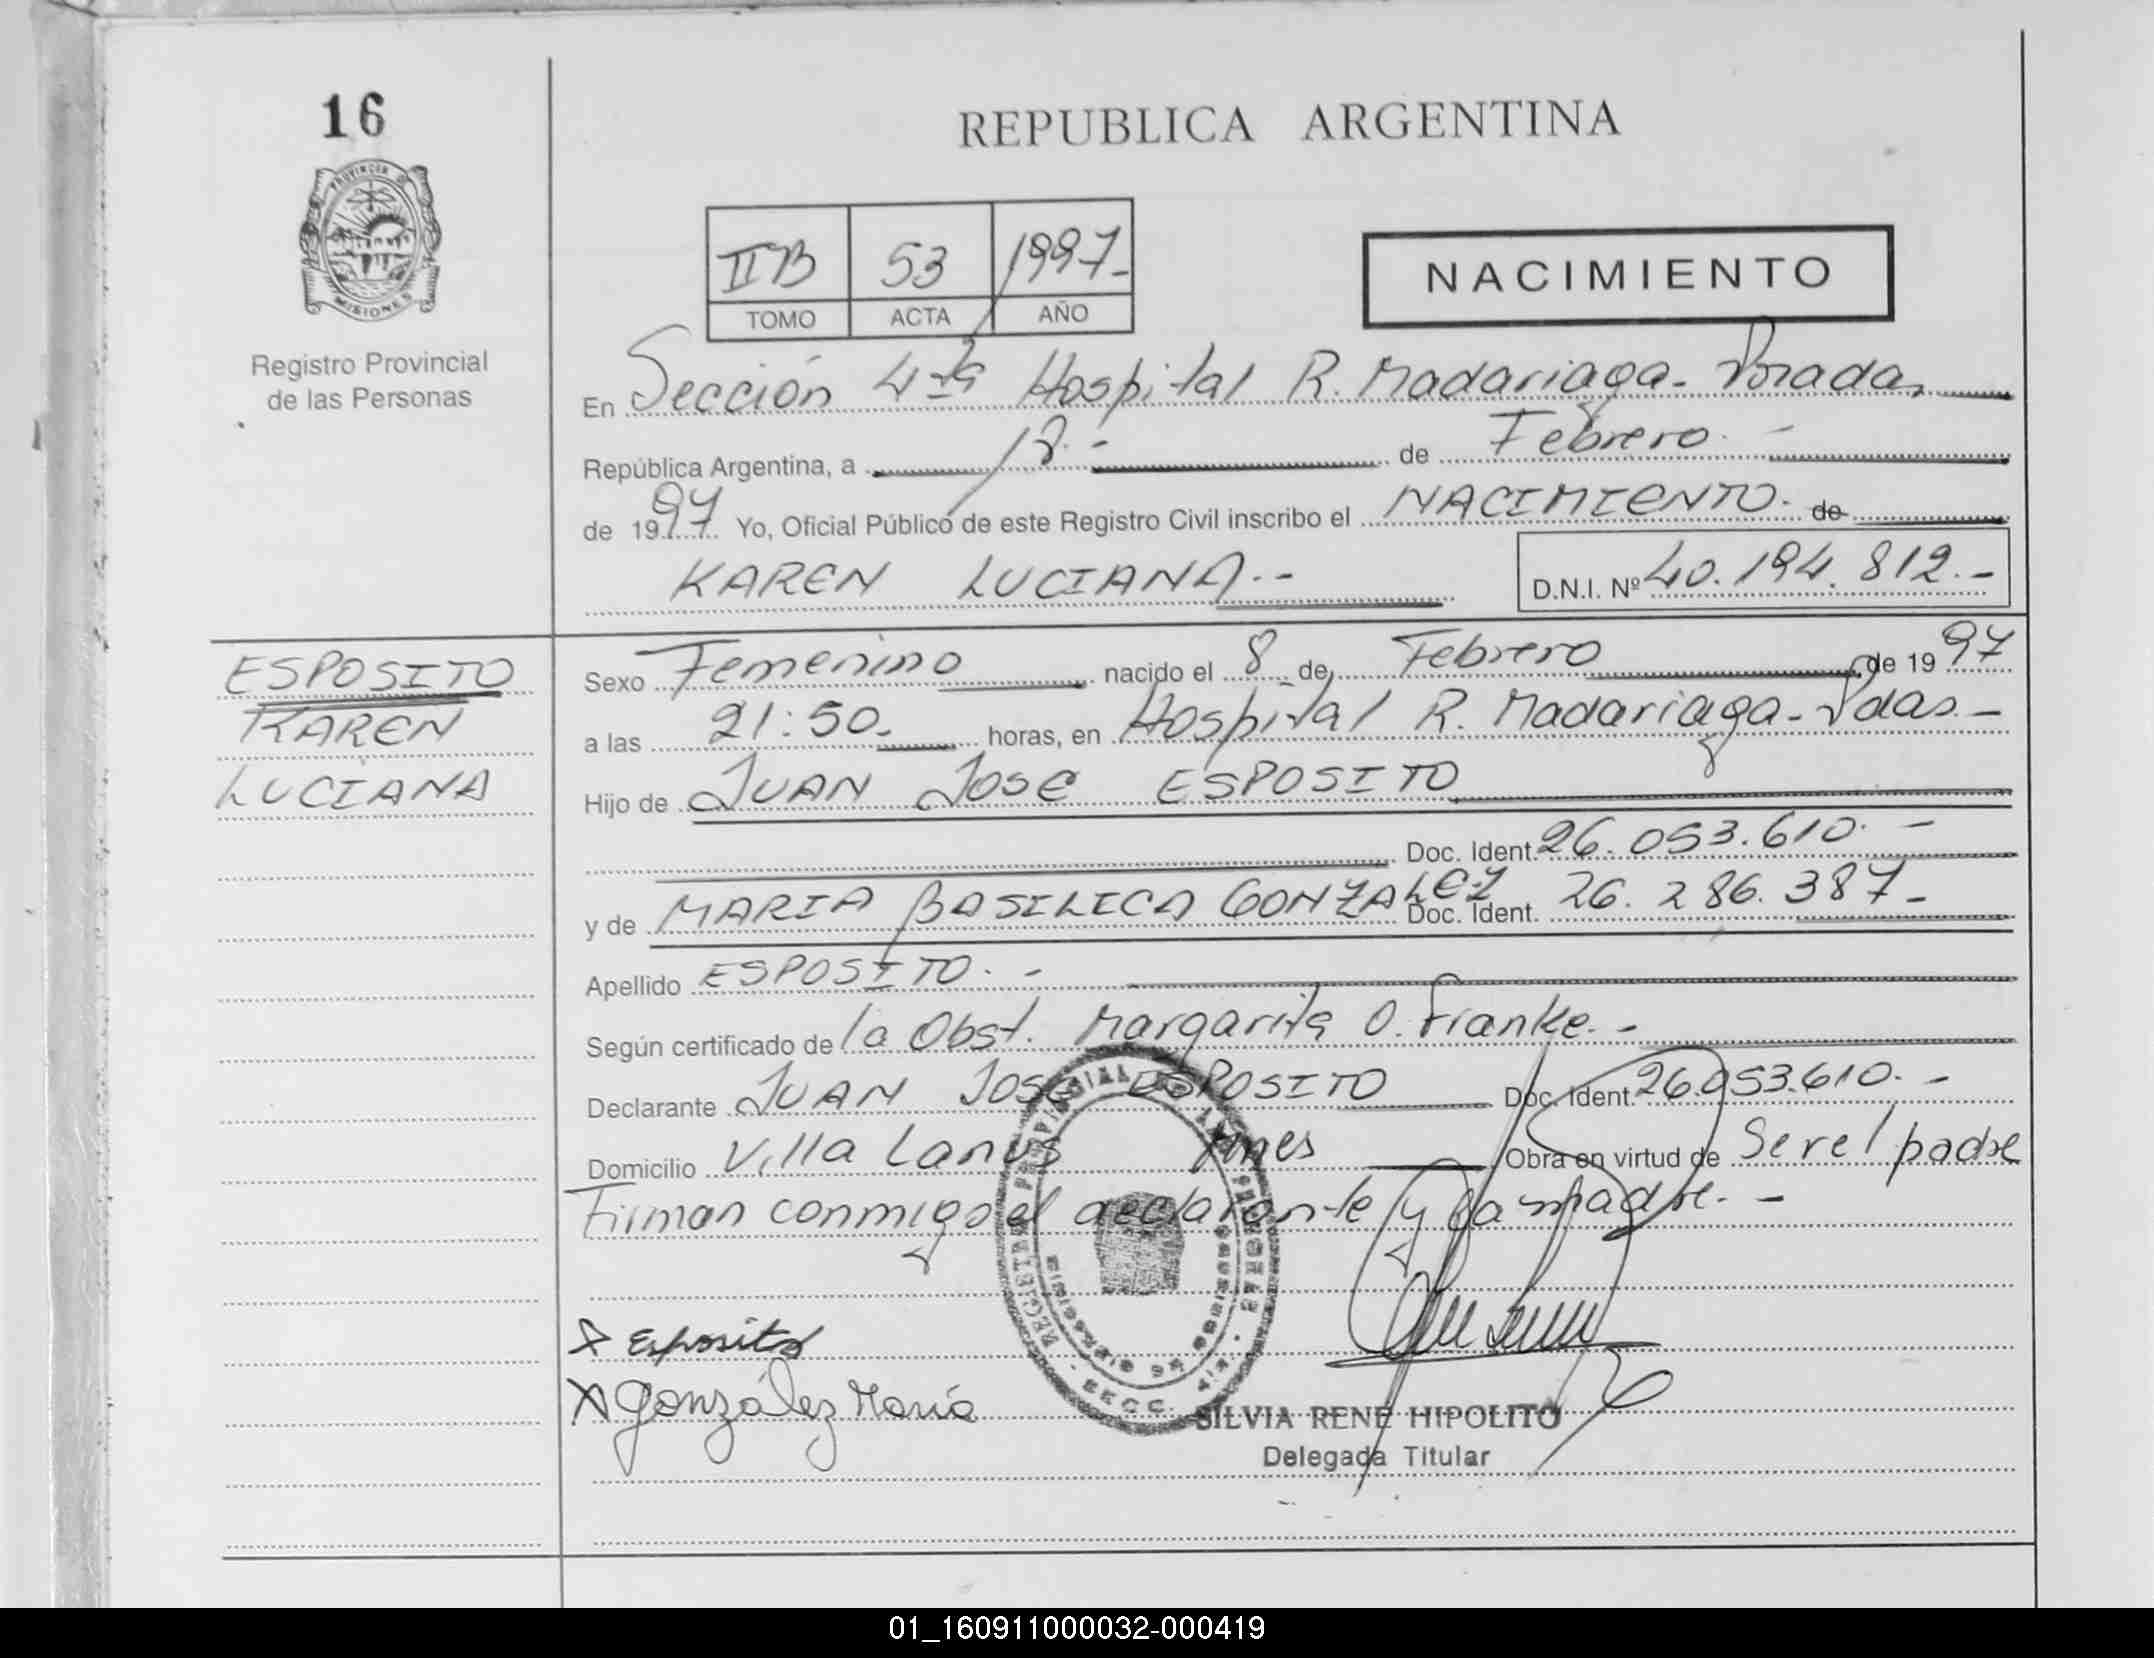 16
REPUBLICA ARGENTINA
PROVINCIA DE
MISIONES
Registro Provincial
de las Personas
II B 53 1997-
TOMO ACTA AÑO
NACIMIENTO
En Sección 4ta Hospital R. Madariaga - Posadas
República Argentina, a de Febrero. -
de 1997. Yo, Oficial Público de este Registro Civil inscribo el NACIMIENTO. de
KAREN LUCIANA.-
D.N.I. Nº 40.194.812.-
ESPOSITO
KAREN
LUCIANA
Sexo Femenino nacido el 8 de Febrero de 1997
a las 21:50. horas, en Hospital R. Madariaga - Pdas. -
Hijo de JUAN JOSE ESPOSITO
Doc. Ident. 26.053.610. -
y de MARIA BASILICA GONZALEZ Doc. Ident. 26.286.387-
Apellido ESPOSITO. -
Según certificado de la Obst. Margarita O. Franke. -
Declarante JUAN JOSE ESPOSITO Doc. Ident. 26.053.610. -
Domicilio Villa Lanus Mnes Obra en virtud de Ser el padre
Firman conmigo el declarante y la madre. -
X Esposito
X González María
SILVIA RENE HIPOLITO
Delegada Titular
01_160911000032-000419